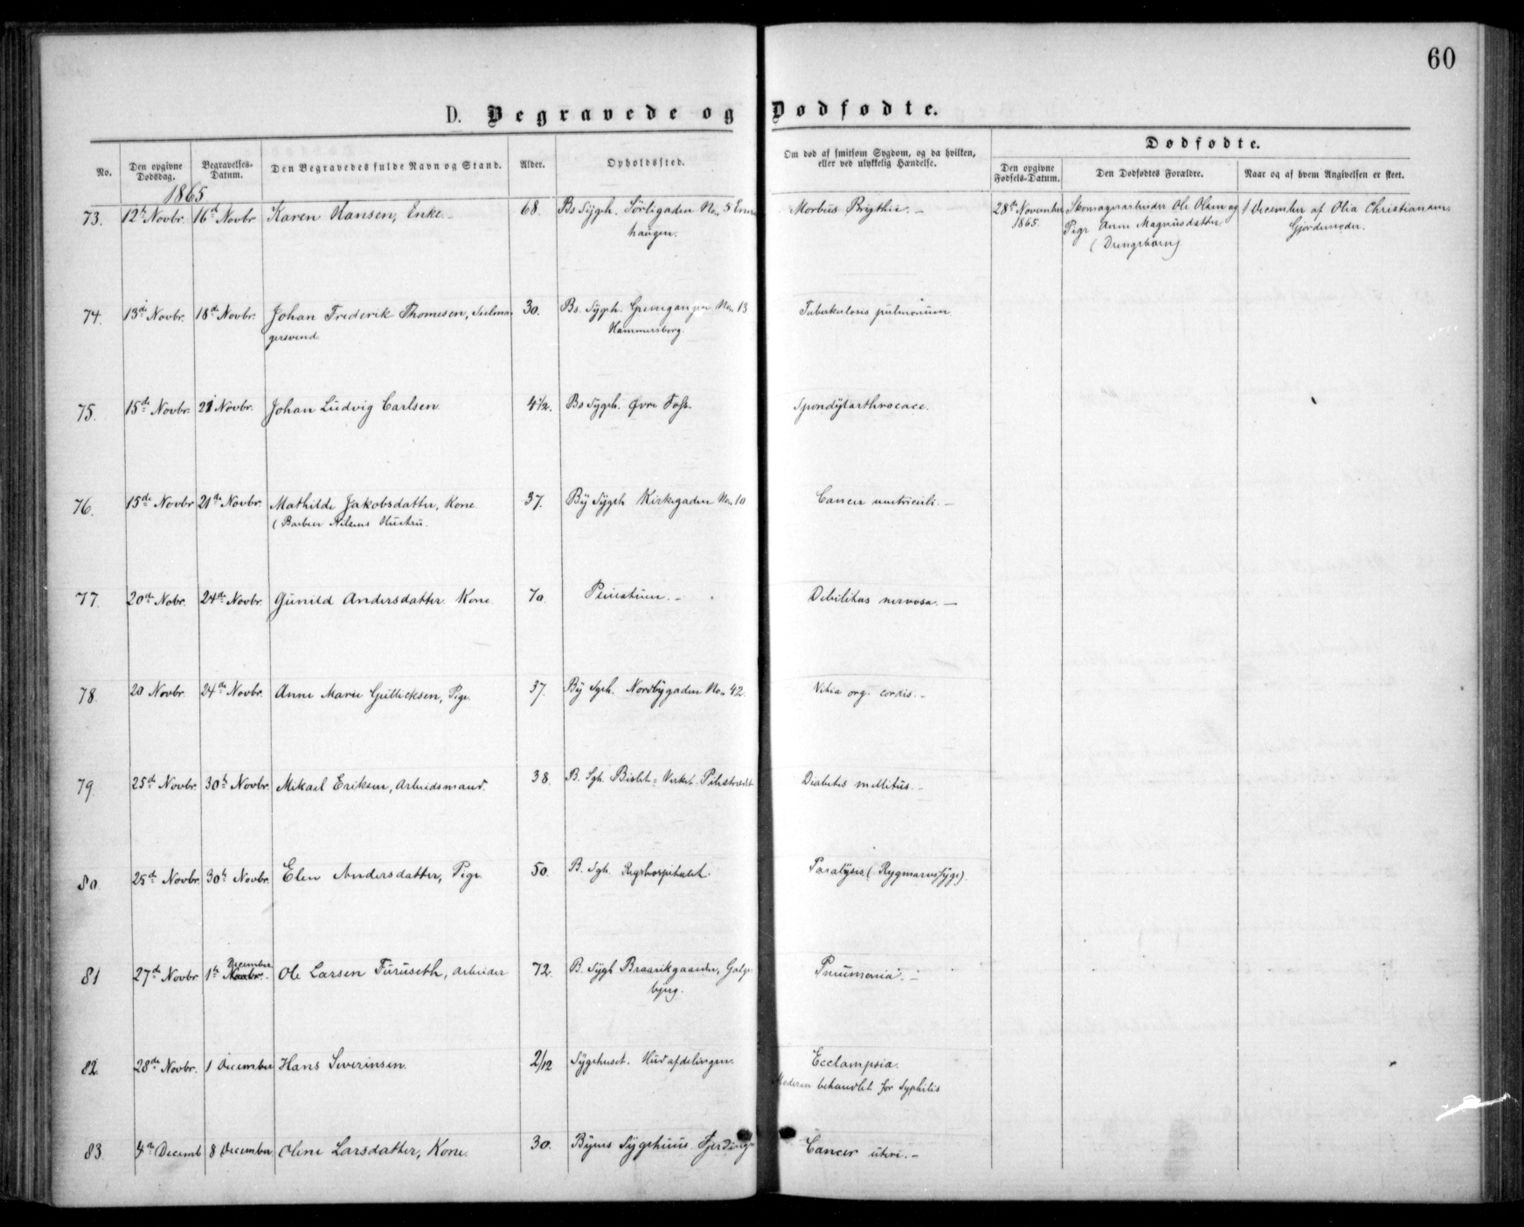 60
D. Begravede og Dødfødte.
No. Den opgivne Dødsdag. Begravelses-Datum. Den Begravedes fulde Navn og Stand. Alder. Opholdssted. Om død af smitsom Sygdom, og da hvilken, eller ved ulykkelig Hændelse. Dødfødte.
Den opgivne Fødsels-Datum. Den Dødfødtes Forældre. Naar og af hvem Angivelsen er skeet.
1865
73. 12te Novbr. 16de Novbr Karen Hansen, Enke. 68. Bs Sygh. Sörligaden No. 5 Ener- Morbus Brigthii. — 28de November Skomagerarbeider Ole Olsen og 1 December af Olia Christiansen
haugen. 1865. Pige Anne Magnusdatter Gjordemoder.
(Drengebarn)
74. 13de Novbr. 18de Novbr. Johan Frederik Thomesen, Seilma- 30. Bs. Sygh. No. 13 Tuberkulosis pulmonum
gersvend. Hammersborg.
75. 15de Novbr. 21 Novbr. Johan Ludvig Carlsen 4 1/2. Bs Sygh. Øvre Foss. Spondylarthrocace.
76. 15de Novbr 21de Novbr. Mathilde Jakobsdatter, Kone 37. By Sygeh Kirkegaden No. 10 Cancer ventriculi. —
(Barber Nilsens Hustru.
77. 20de Nobr. 24de Novbr. Gunild Andersdatter Kone 70. Debilitas nervosa. —
78. 20 Novbr. 24de Novbr. Anne Marie Gulliksen, Pige. 37. By Sgeh. Nordbygaden No. 42. Vitia org. cordis. —
79. 25de Novbr 30te Novbr. Mikael Eriksen, Arbeidsmand. 38. B. Sgh. Bislet-Verket. Pilestrædet Diabetes mellitus. —
80. 25de Novbr. 30te Novbr. Elen Andersdatter, Pige 50. B. Sgh. Rigshospitalet. Paralysis (Rygmarvssyge).
81 27de Novbr 1te December Novbr. Ole Larsen Furuseth, Arbeider 72. B. Sygh Braarikgaarden, Galge- Pneumonia. —
bjerg.
82. 28de Novbr. 1 December Hans Severinsen. 2/12 Sygehuset. Hudafdelingen. Ecclampsia.
Moderen behandlet for Syphilis
83. 4de Decemb 8 December Oline Larsdatter, Kone. 30. Byens Sygehuus Fjerdinge Cancer uteri. —